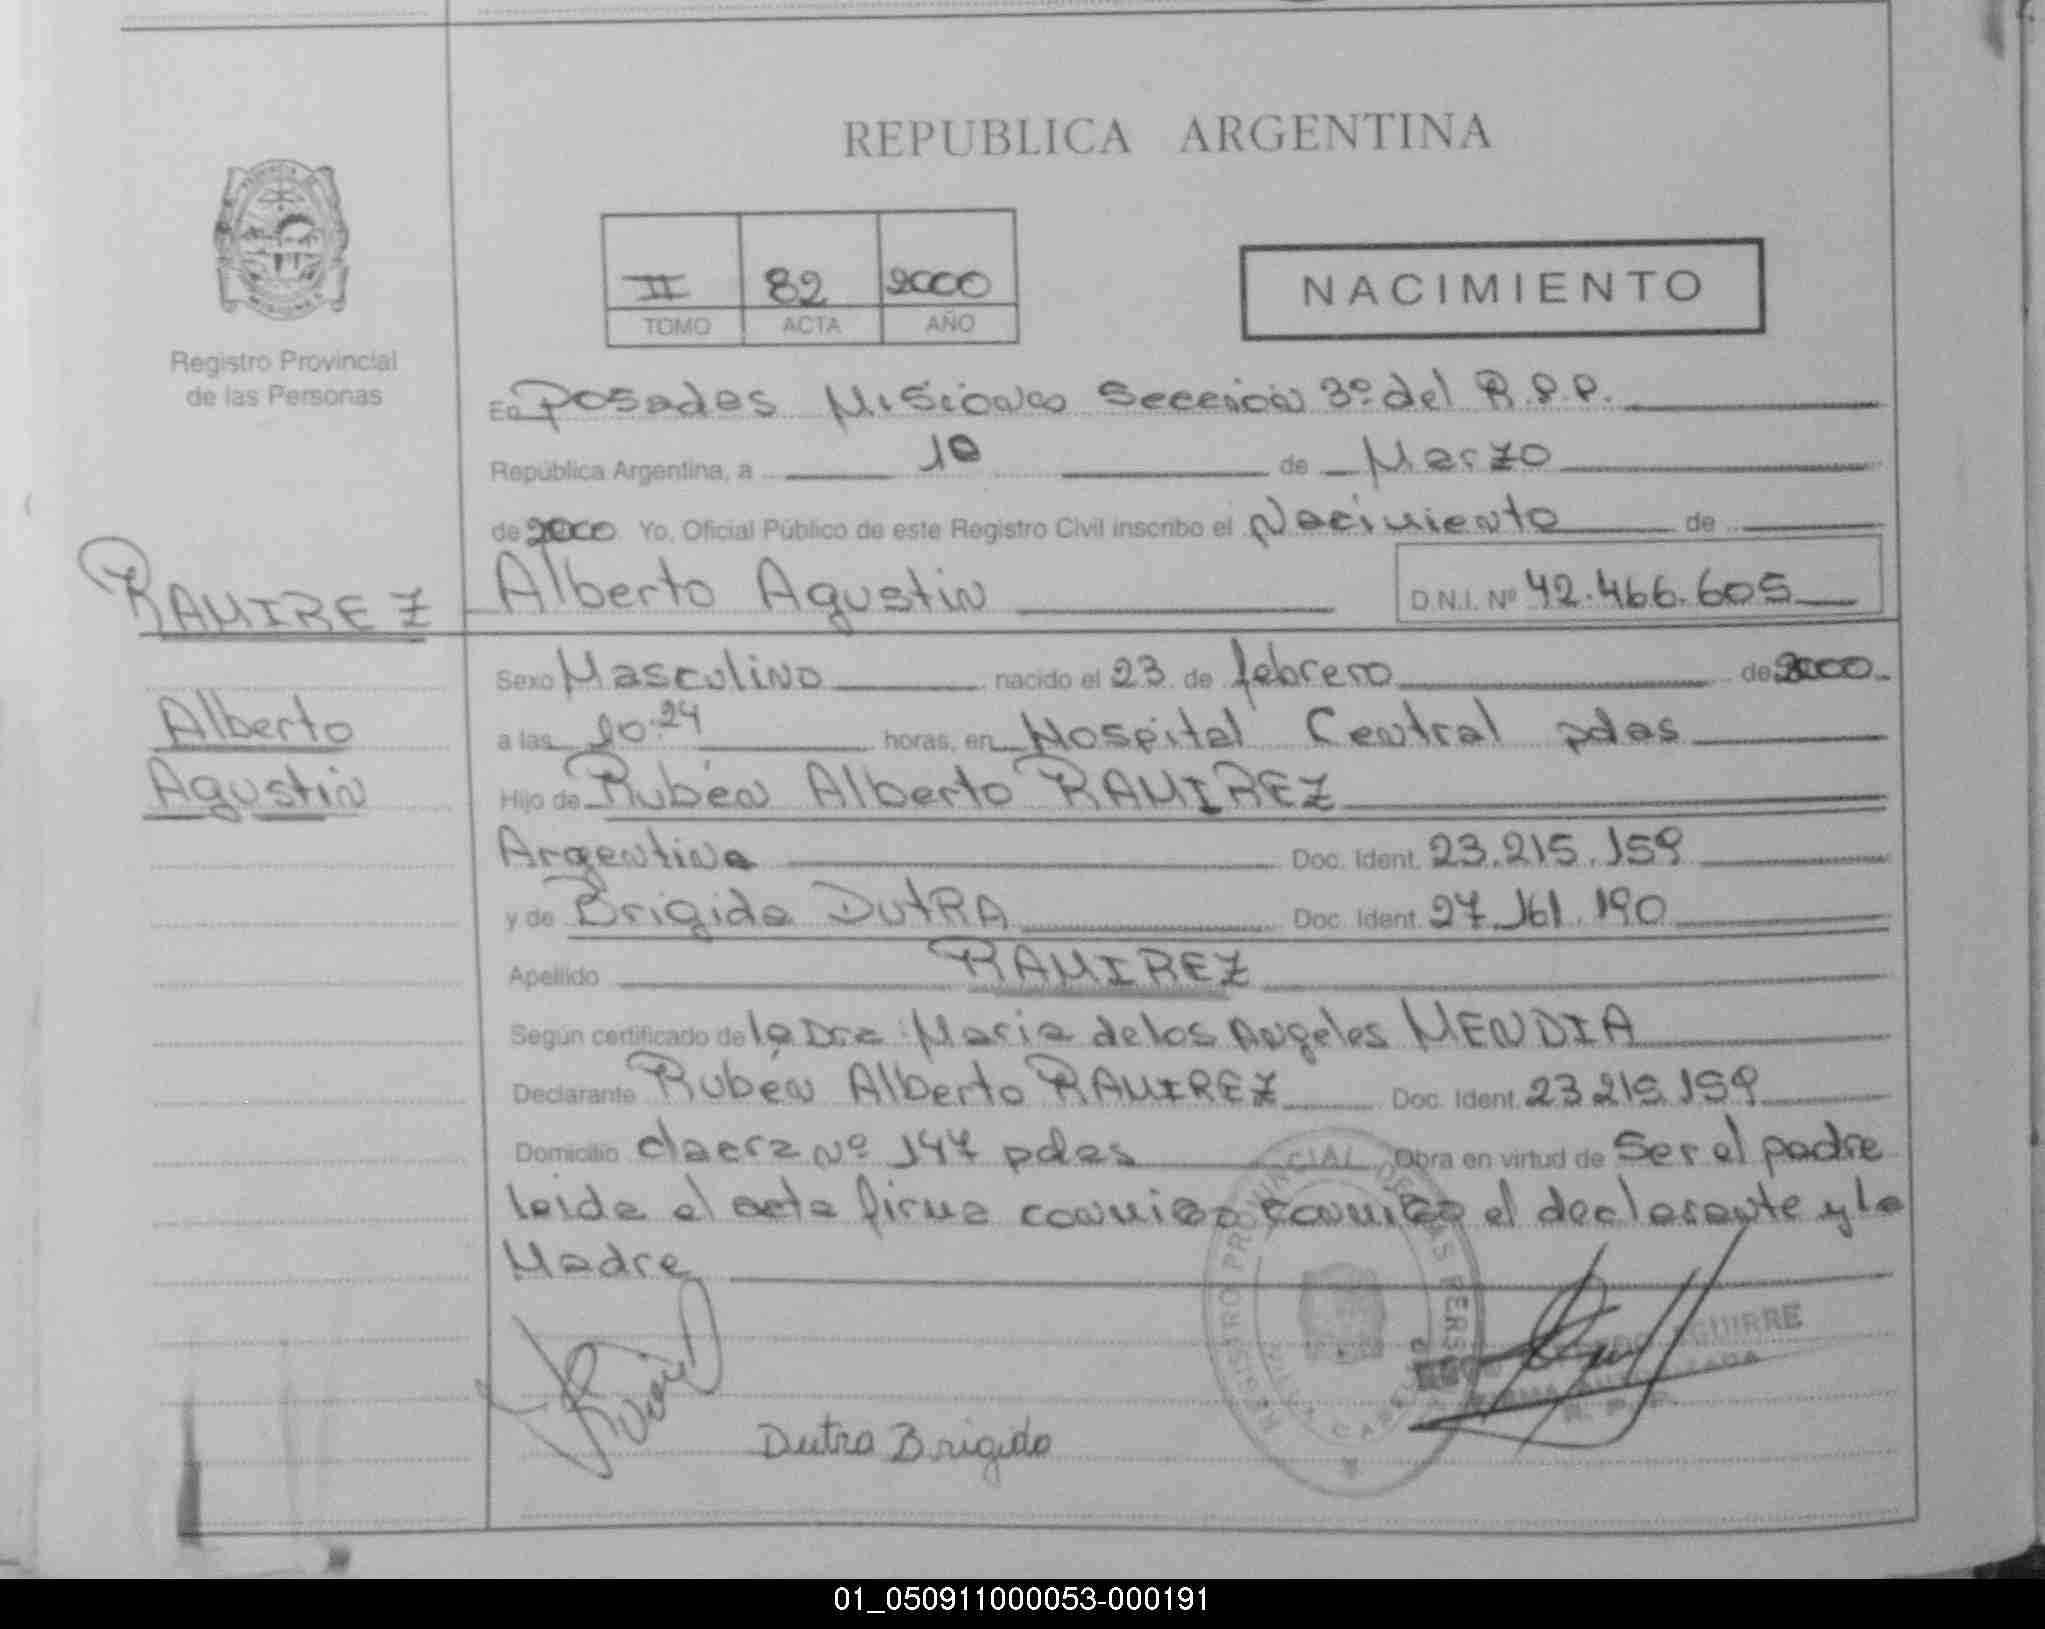 REPUBLICA ARGENTINA
II 82 2000
TOMO ACTA AÑO
NACIMIENTO
Registro Provincial
de las Personas
En Posadas Misiones Sección 3º del R.P.P.
República Argentina, a 10 de Marzo
de 2000 Yo, Oficial Público de este Registro Civil inscribo el Nacimiento de
RAMIREZ
Alberto Agustin
D.N.I. Nº 42.466.605
Alberto
Agustin
Sexo Masculino nacido el 23 de febrero de 2000
a las 20:24 horas, en Hospital Central pdas
Hijo de Rubén Alberto RAMIREZ
Argentina Doc. Ident. 23.215.159
y de Brigida DUtRA Doc. Ident. 27.161.190
Apellido RAMIREZ
Según certificado de la Dra Maria de los Angeles MENDIA
Declarante Rubén Alberto RAMIREZ Doc. Ident. 23 215.159
Domicilio Nº 147 pdas Obra en virtud de Ser el padre
leida el acta firma conmigo conmigo el declarante y la
Madre
REGISTRO PROVINCIAL DE LAS PERS
AGUIRRE
Dutra Brigida
01_050911000053-000191